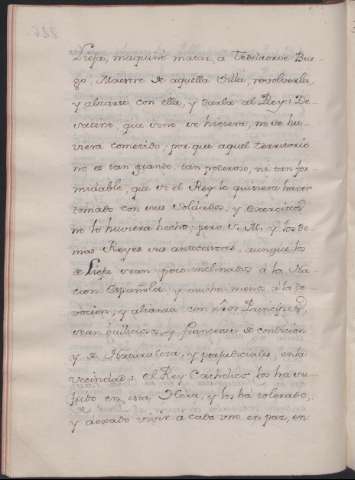 Liefa, maquinó matar, a
Maestre de aquella Villa, revolverla,
y alzarse con ella, y darla al Rey: De
que sino se hiciera, no se hu-
viera cometido: porque aquel territorio
no es tan grande, tan poderoso, ni tan for-
midable, que si el Rey lo quisiera haver
tomado con sus Soldados, y Exercitos
no lo huviera hecho; pero S. M. y los De
mas Reyes sus antecesores, aunque los
de Liefa eran poco inclinados a la Na
cion Española, y mucho menos a la de
y alianza con Principes,
eran y franceses de condicion
y de Naturaleza, y perjudiciales, en la
vecindad: el Rey Catholico los ha su
frido en esta, y los ha tolerado,
y dexado vivir a cada uno en paz, en